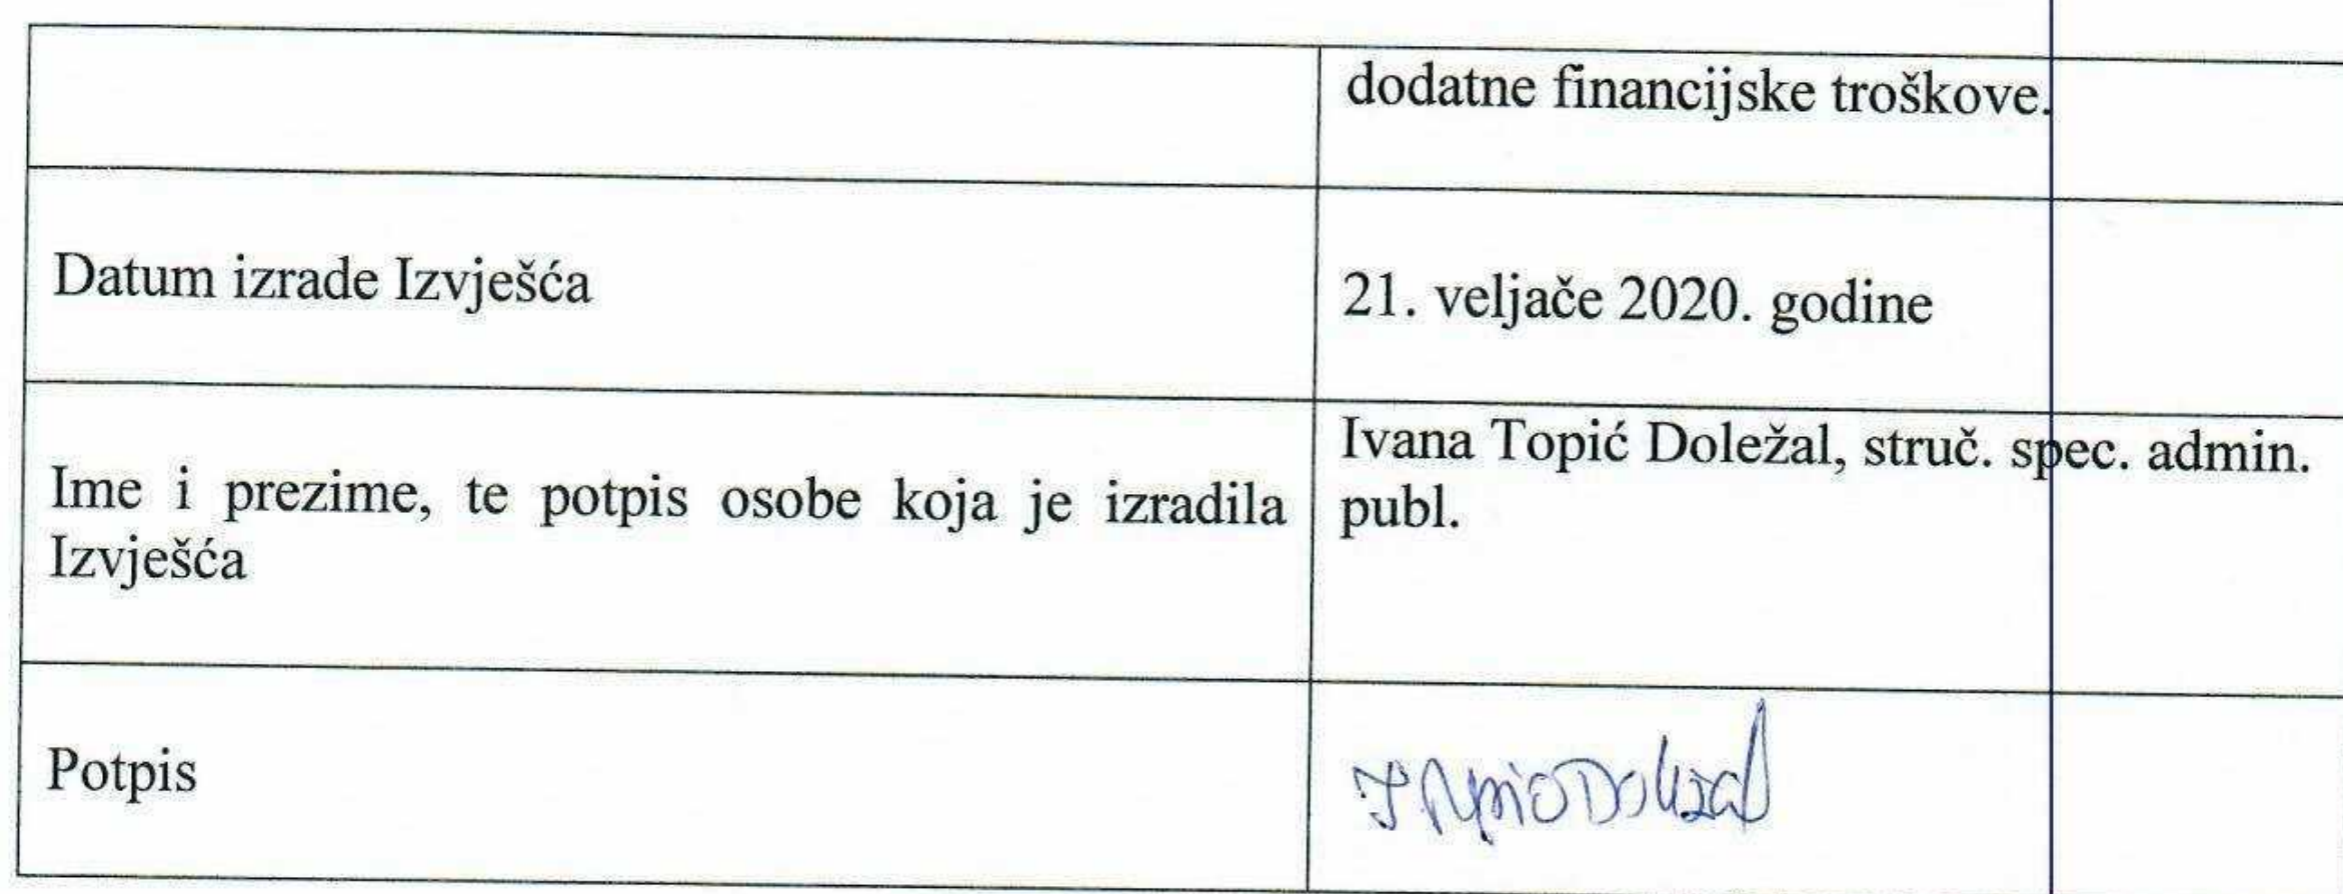 dodatne financijske troškove.
Datum izrade Izvješća
21. veljače 2020. godine
Ime i prezime, te potpis osobe koja je izradila
Izvješća
Ivana Topić Doležal, struč. spec. admin.
publ.
Potpis